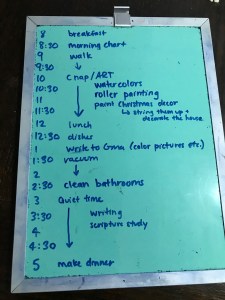 8 breakfast
8:30 morning chart
9 walk
9:30
10 Crap/ART
10:30 watercolors
11 roller painting
11:30 paint Christmas decor
↳ string them up + decorate the house
12 lunch
12:30 dishes
1 Write to Gma (color pictures etc.)
1:30 vacuum
2
2:30 clean bathrooms
3 Quiet time
3:30 writing
4 scripture study
4:30
5 make dinner